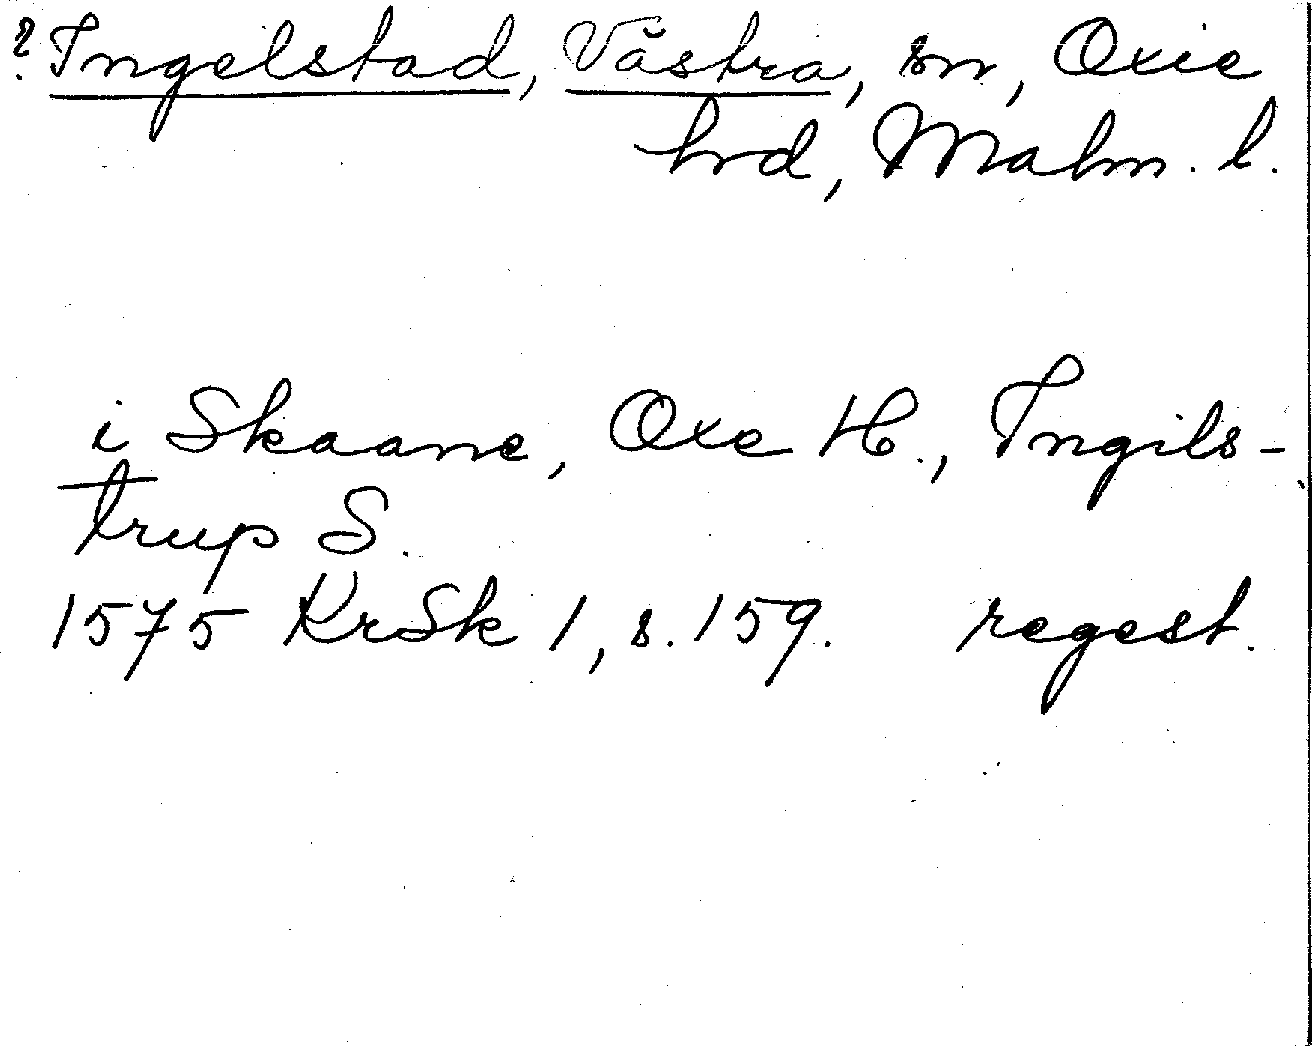 ? Ingelstad, Västra, sn, Oxie
hrd, Malm. l.
i Skaane, Oxe H., Ingils-
trup S.
1575 KrSk 1, s. 159. regest.